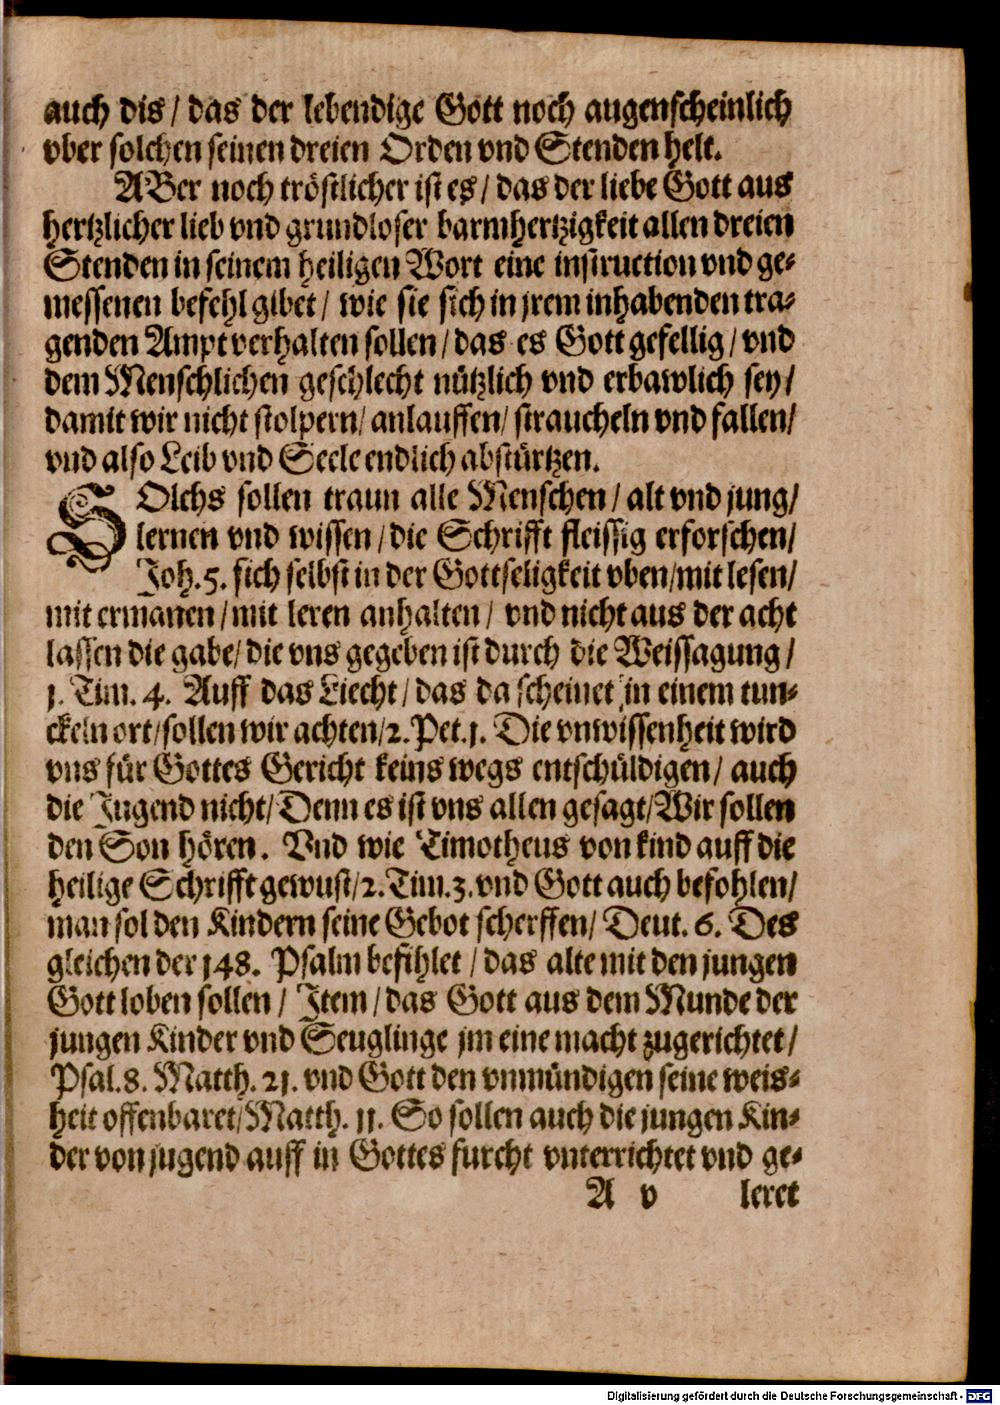 auch dis / das der lebendige Gott noch augenscheinlich
vber solchen seinen dreien Orden vnd Stenden helt.
ABer noch tröstlicher ist es / das der liebe Gott aus
hertzlicher lieb vnd grundloser barmhertzigkeit allen dreien
Stenden in seinem heiligen Wort eine instruction vnd ge-
messenen befehl gibet / wie sie sich in jrem inhabenden tra-
genden Ampt verhalten sollen / das es Gott gefellig / vnd
dem Menschlichen geschlecht nützlich vnd erbawlich sey /
damit wir nicht stolpern / anlauffen / straucheln vnd fallen /
vnd also Leib vnd Seele endlich abstürtzen.
SOlchs sollen traun alle Menschen / alt vnd jung /
lernen vnd wissen / die Schrifft fleissig erforschen /
Joh. 5. sich selbst in der Gottseligkeit vben / mit lesen /
mit ermanen / mit leren anhalten / vnd nicht aus der acht
lassen die gabe / die vns gegeben ist durch die Weissagung /
1. Tim. 4. Auff das Liecht / das da scheinet in einem tun-
ckeln ort / sollen wir achten / 2. Pet. 1. Die vnwissenheit wird
vns für Gottes Gericht keins wegs entschüldigen / auch
die Jugend nicht / Denn es ist vns allen gesagt / Wir sollen
den Son hören. Vnd wie Timotheus von kind auff die
heilige Schrifft gewust / 2. Tim. 3. vnd Gott auch befohlen /
man sol den Kindern seine Gebot scherffen / Deut. 6. Des
gleichen der 148. Psalm befihlet / das alte mit den jungen
Gott loben sollen / Item / das Gott aus dem Munde der
jungen Kinder vnd Seuglinge jm eine macht zugerichtet /
Psal. 8. Matth. 21. vnd Gott den vnmündigen seine weis-
heit offenbaret / Matth. 11. So sollen auch die jungen Kin-
der von jugend auff in Gottes furcht vnterrichtet vnd ge-
A v leret
Digitalisierung gefördert durch die Deutsche Forschungsgemeinschaft - DFG